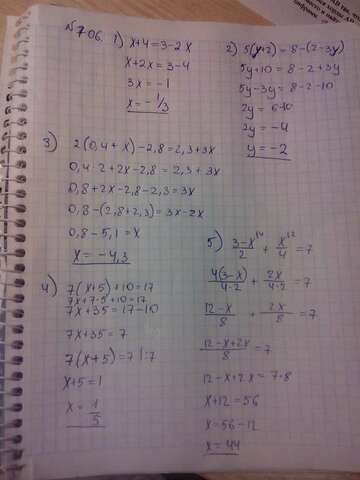 №706. 1) x+4=3-2x
x+2x=3-4
3x=-1
x=-1/3
2) 5(y+2)=8-(2-3y)
5y+10=8-2+3y
5y-3y=8-2-10
2y=6-10
2y=-4
y=-2
3) 2(0,4+x)-2,8=2,3+3x
0,4·2+2x-2,8=2,3+3x
0,8+2x-2,8-2,3=3x
0,8-(2,8+2,3)=3x-2x
0,8-5,1=x
x=-4,3
4) 7(x+5)+10=17
7x+7·5+10=17
7x+35=17-10
7x+35=7
7(x+5)=7 |:7
x+5=1
x=1/5
5) (3-x)/2 + x/4 = 7
4(3-x)/(4·2) + 2x/(4·2) = 7
(12-x)/8 + 2x/8 = 7
(12-x+2x)/8 = 7
12-x+2x=7·8
x+12=56
x=56-12
x=44